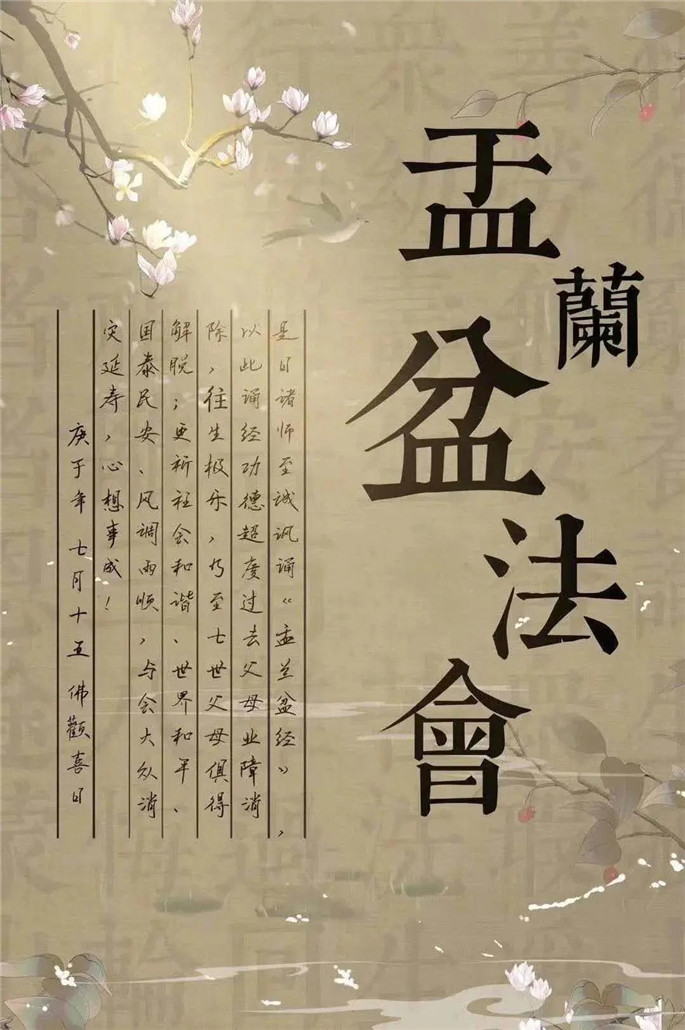 盂蘭盆法會
是日諸师至诚讽诵《盂兰盆经》，
以此诵经功德超度过去父母业障消
除，往生极乐，乃至七世父母俱得
解脱；更祈社会和谐、世界和平、
国泰民安、风调雨顺，与会大众消
灾延寿，心想事成！
庚子年七月十五佛歡喜日